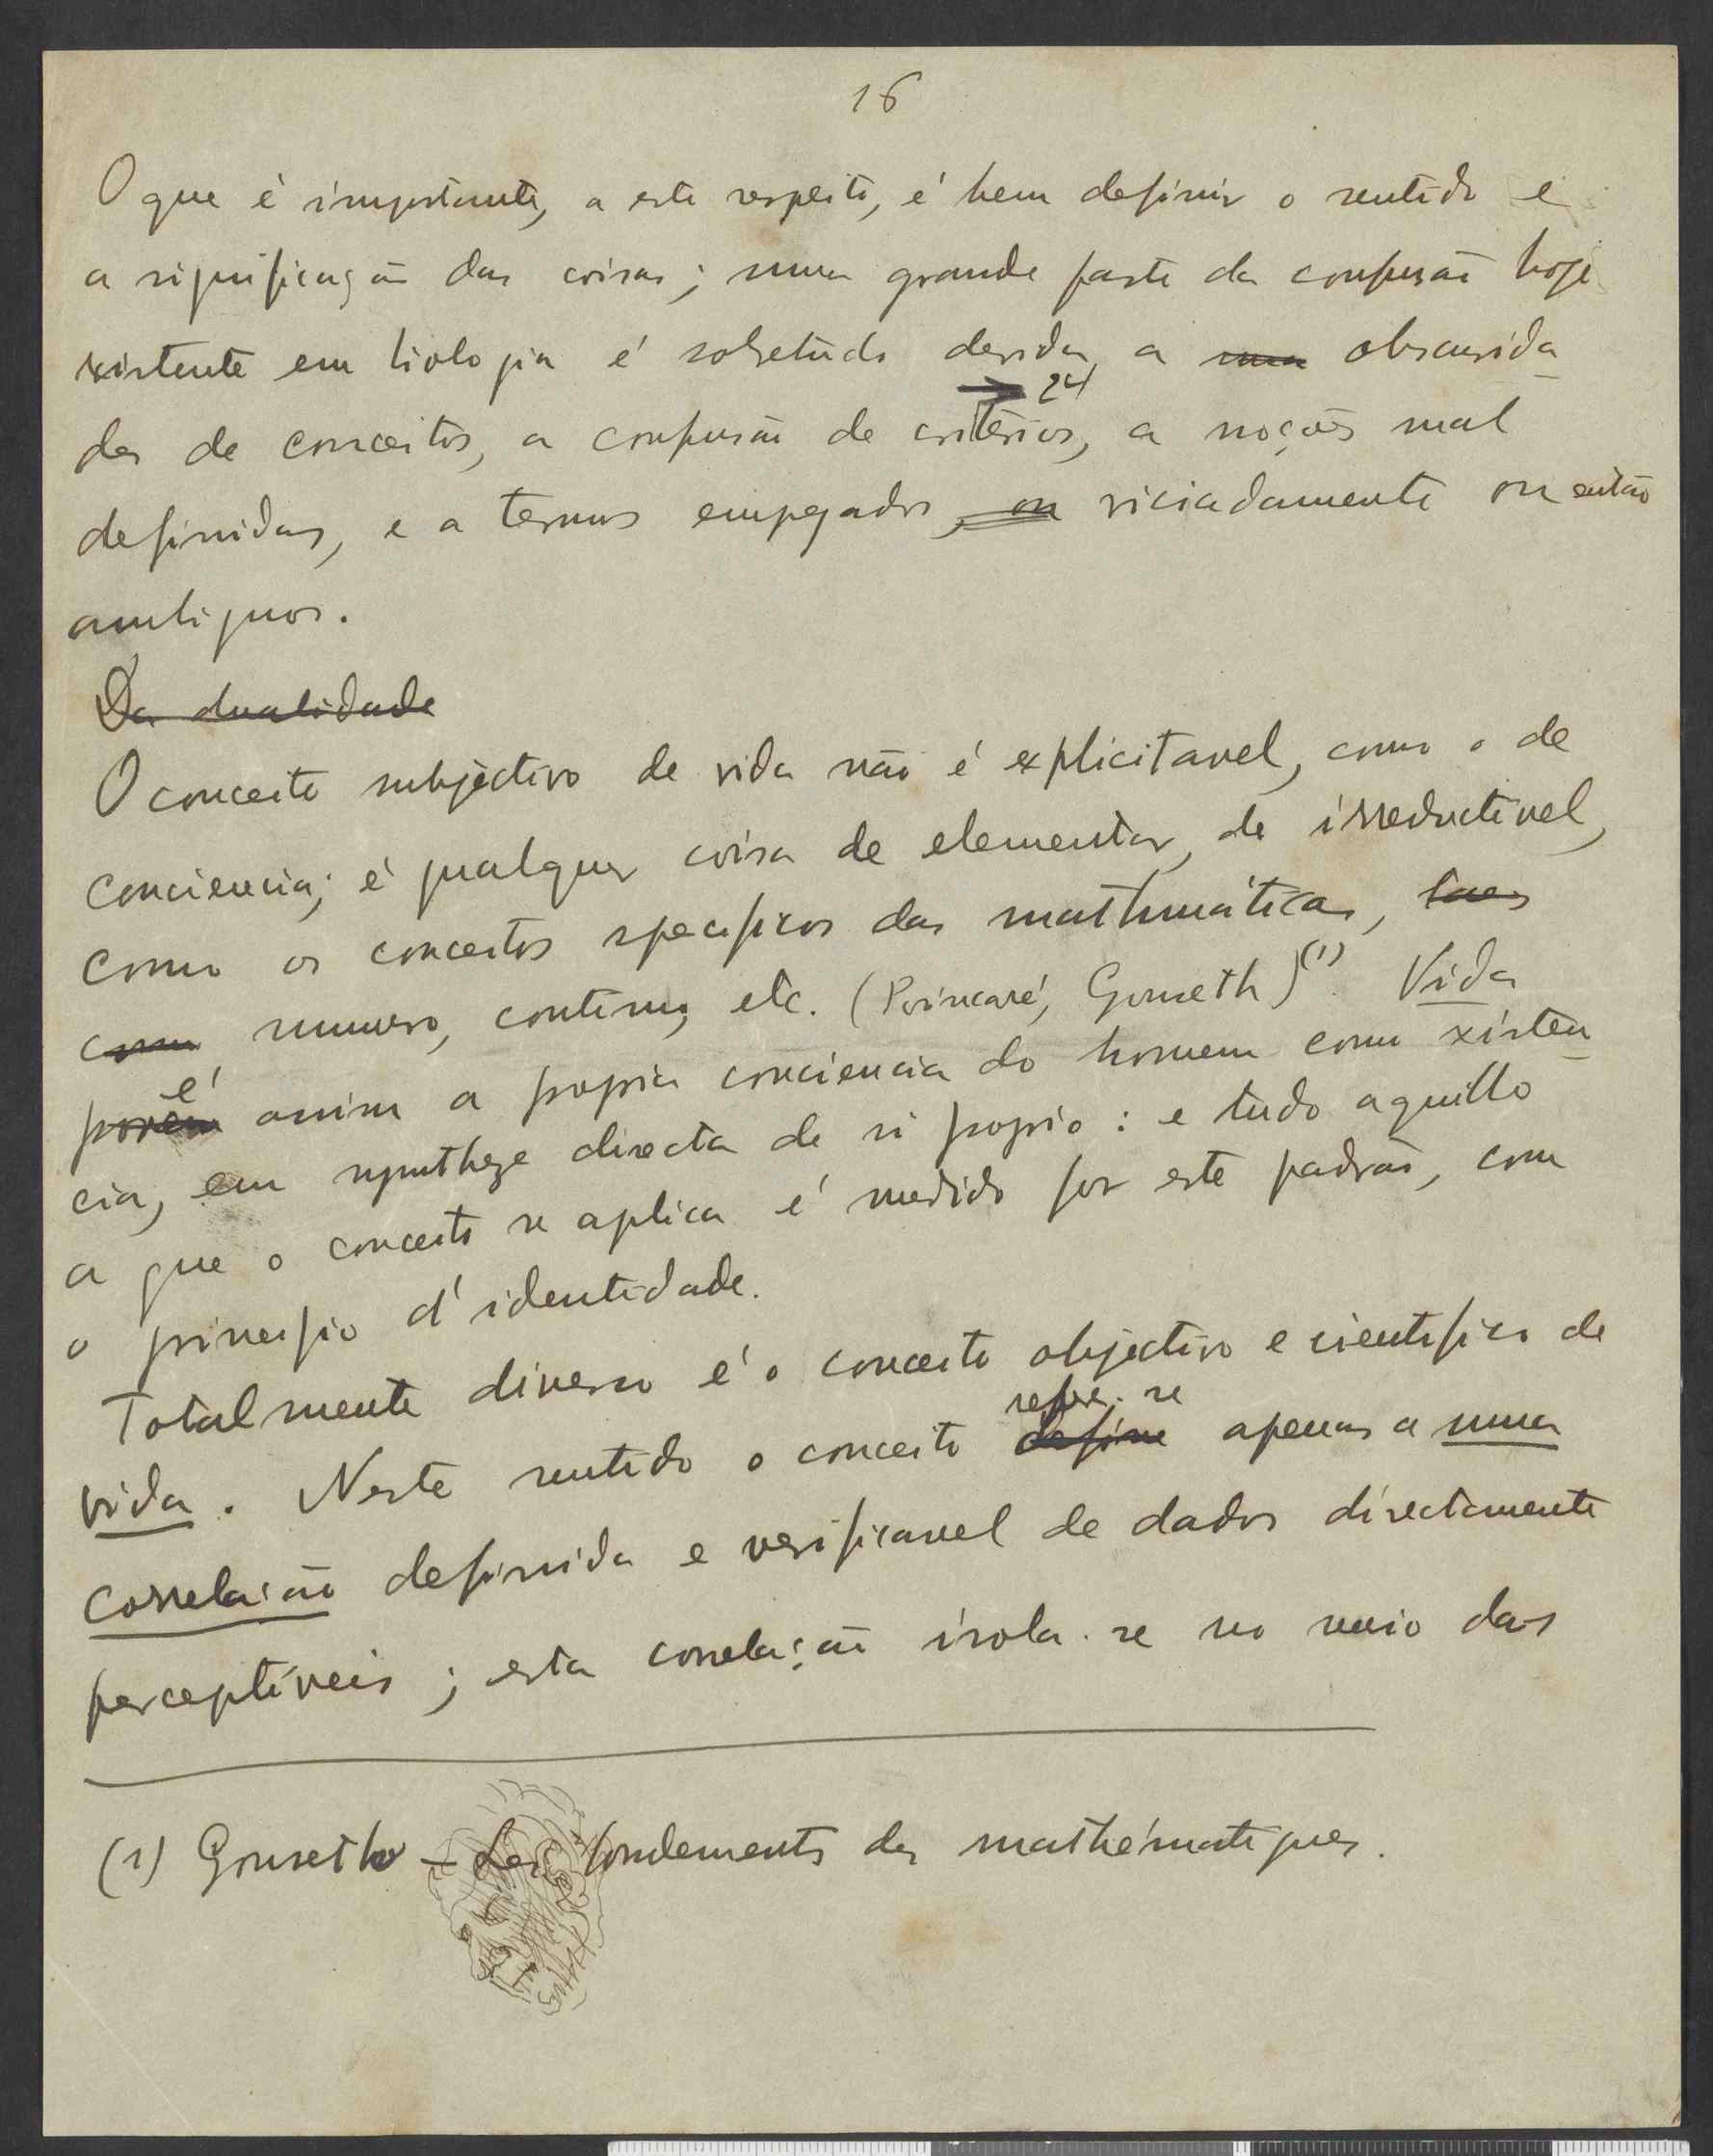 16
O que é importante, a este respeito, é bem definir o sentido e
a significação das coisas; uma grande parte da confusão hoje
existente em biologia é sobretudo devida, a uma obscurida-
de de conceitos, a confusão de critérios, a noções mal
→ 24
definidas, e a termos empegados, ou viciadamente ou então
ambiguos.
Da dualidade
O conceito subjectivo de vida não é explicitavel, como o de
conciencia; é qualquer coisa de elementar, de irreductivel,
como os conceitos specificos das mathmáticas, taes
como numero, continuo, etc. (Poincaré, Gonseth)(1). Vida
é
porém assim a propria conciencia do homem como existen-
cia, em synthese directa de si proprio: e tudo aquillo
a que o conceito se aplica é medido por este padrão, com
o principio d'identidade.
Totalmente diverso é o conceito objectivo e cientifico de
refere-se
vida. Neste sentido o conceito define apenas a uma
correlação definida e verificavel de dados directamente
perceptíveis; esta correlação isola-se no meio das
(1) Gonseth – Les fondements des mathématiques.